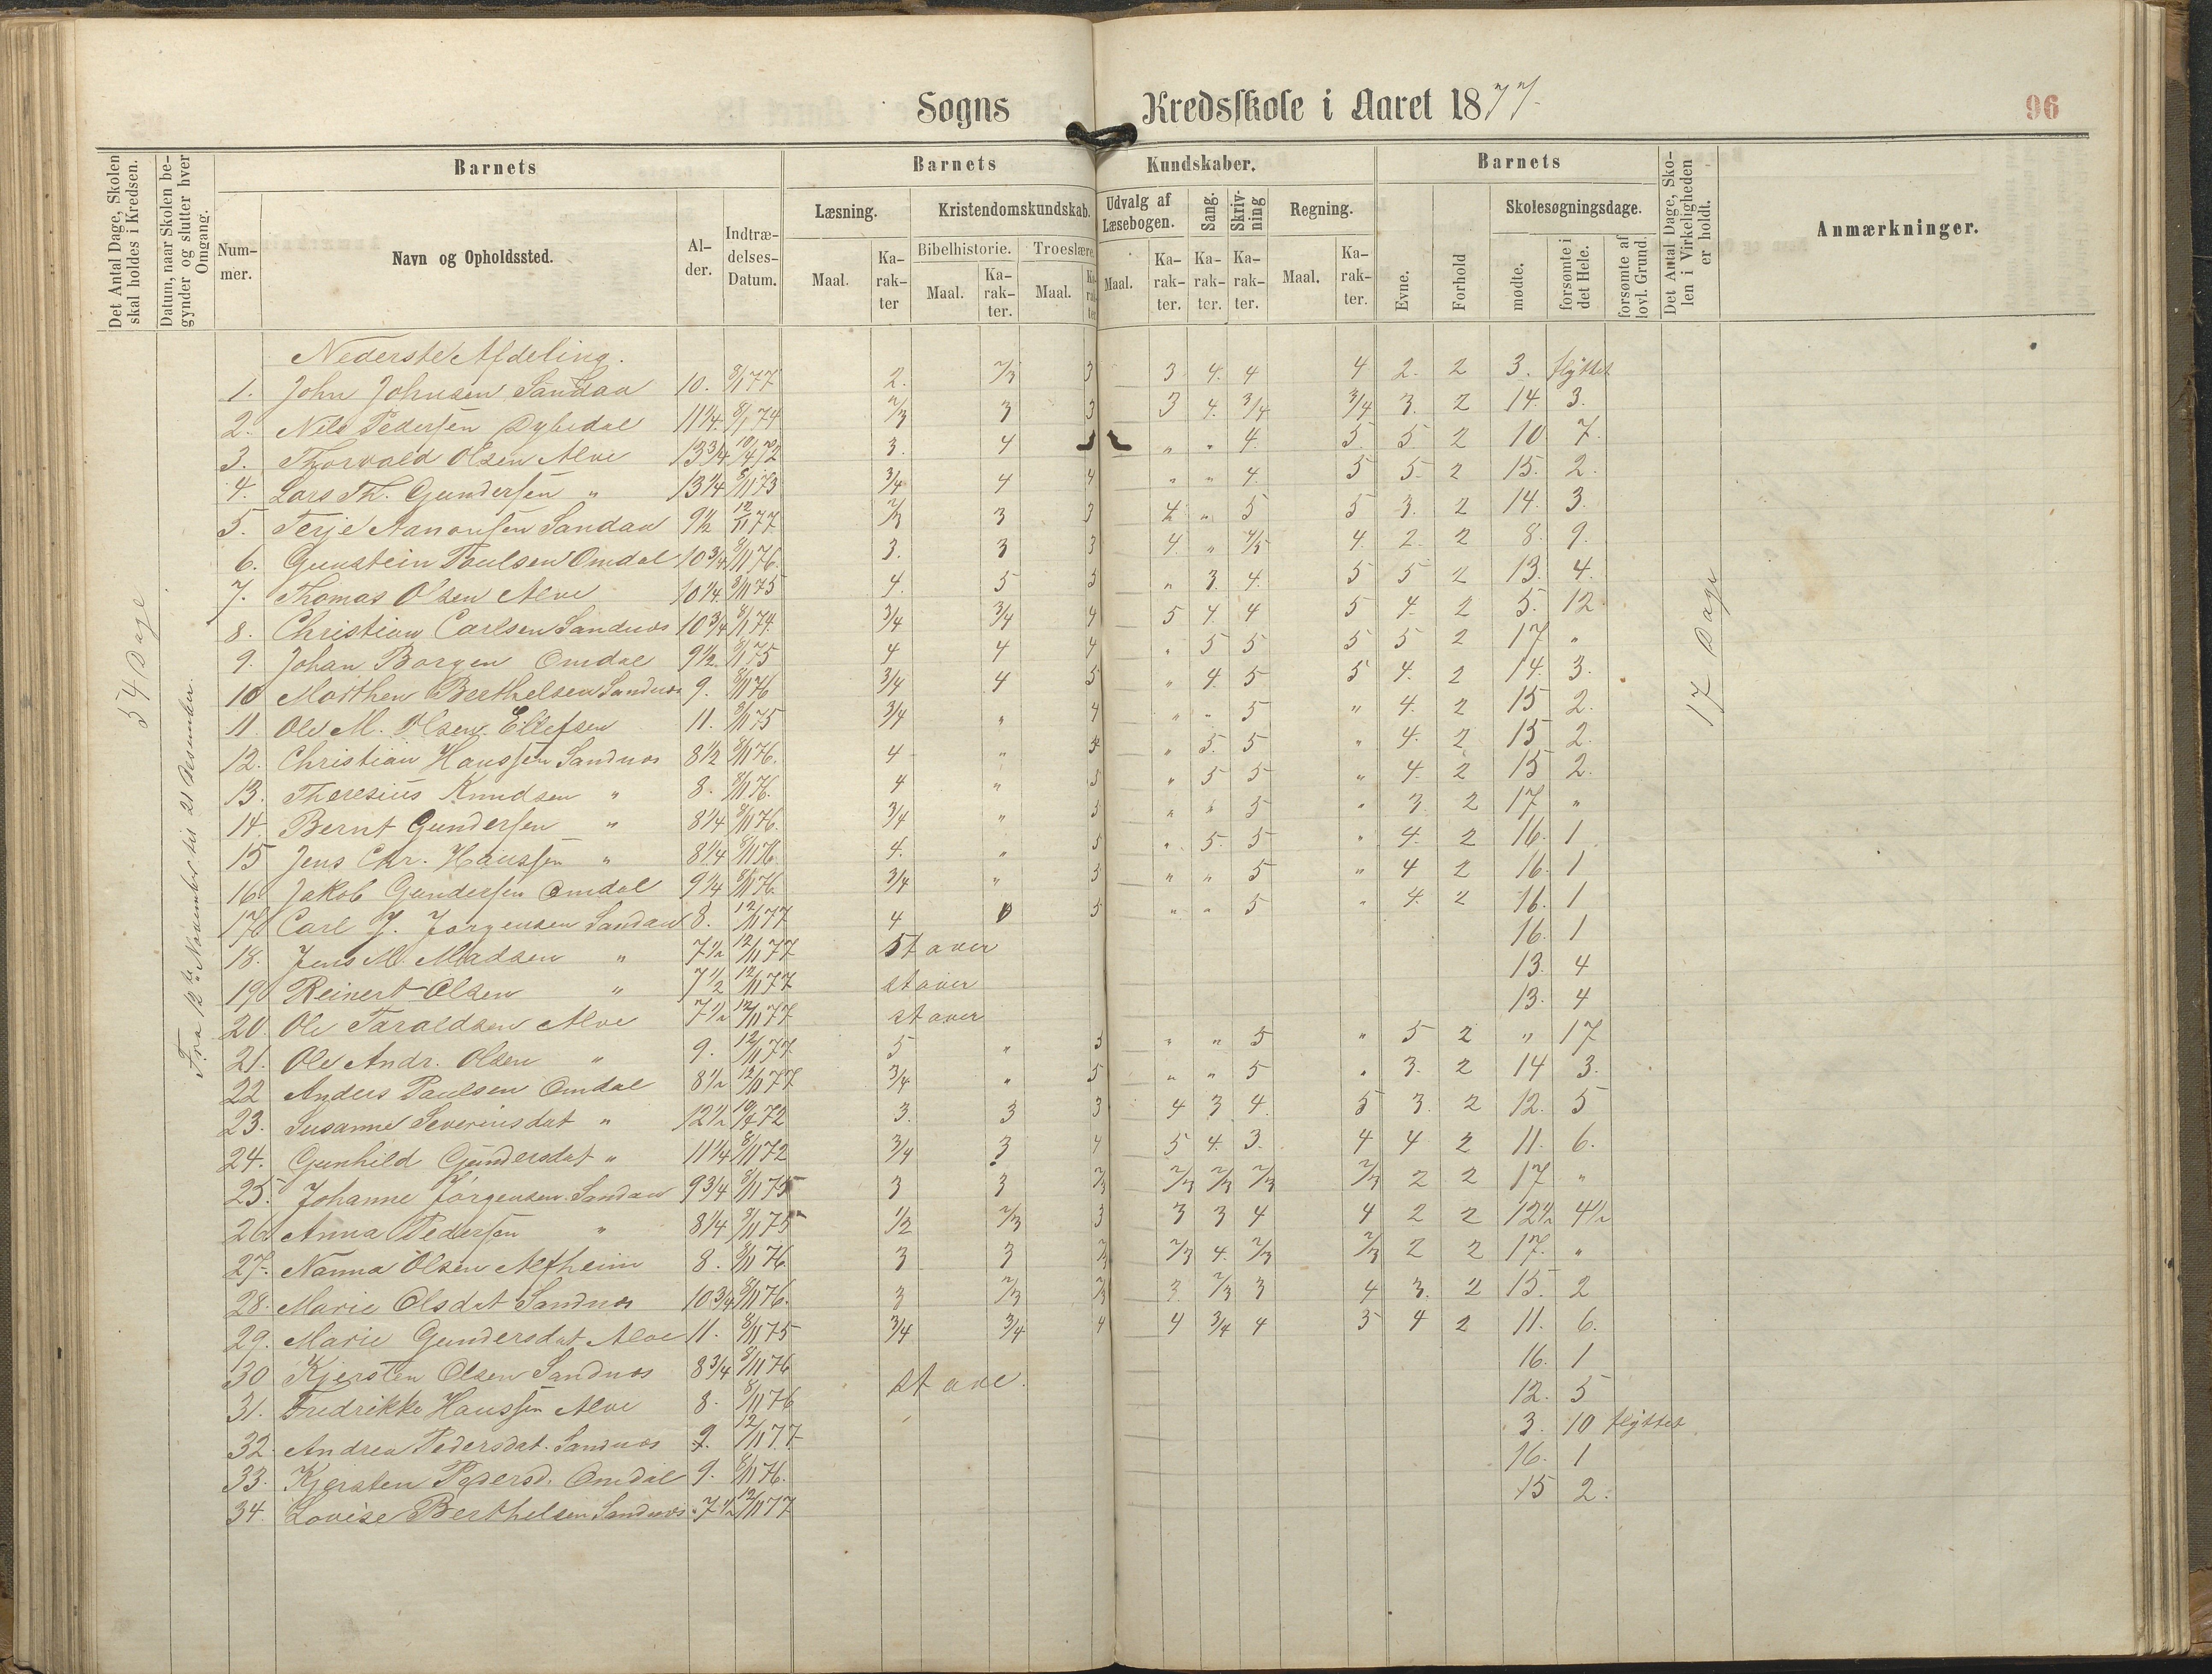 Sogns Kredsskole i Aaret 1877.
96
Det Antal Dage, Skolen skal holdes i Kredsen.
Datum, naar Skolen begynder og slutter hver Omgang.
Barnets
Barnets
Kundskaber.
Barnets
Det Antal Dage, Skolen i Virkeligheden er holdt.
Anmærkninger.
Nummer.
Navn og Opholdssted.
Alder.
Indtrædelses-Datum.
Læsning.
Kristendomskundskab.
Udvalg af Læsebogen.
Sang.
Skrivning
Regning.
Evne.
Forhold
Skolesøgningsdage.
Bibelhistorie.
Troeslære.
Maal.
Karakter
Maal.
Karakter.
Maal.
Karakter
Maal.
Karakter.
Karakter.
Karakter.
Maal.
Karakter.
mødte.
forsømte i det Hele.
forsømte af lovl. Grund.
54 Dage
Fra 12te November til 21 Desember.
17 Dage
Nederste Afdeling.
1. John Johnsen Sandaa 10. 8/1 77 2. 2/3 3 3 4. 4 4 2. 2 3. flyttet
2. Nils Pedersen Dybedal 11 1/4 8/1 74 2/3 3 3 3 4. 3/4 3/4 3. 2 14. 3.
3. Thorvald Olsen Alve 13 3/4 10/4 72 3. 4 " " 4. 5. 5 2 10 7.
4. Lars Th. Gundersen " 13 1/4 8/11 73 3/4 4 4 " " 4. 5 5 2 15. 2.
5. Terje Aanonsen Sandaa 9 1/2 12/11 77 2/3 3 3 4 " 5 5 3. 2 14. 3.
6. Gunstein Poulsen Omdal 10 3/4 8/11 76. 3. 3 3 4. " 4/5 4. 2. 2 8. 9.
7. Thomas Olsen Alve 10 1/4. 8/11 75 4. 5 5 " 3. 4. 5 5 2 13. 4.
8. Christian Carlsen Sandnæs 10 3/4 8/1 74. 3/4 3/4 4 5 4. 4 5 4. 2 5. 12.
9. Johan Borgen Omdal 9 1/2 8/11 75 4 4 4 " 5 5 5 5 2 17 "
10 Morthen Berthelsen Sandnæs 9. 8/11 76 3/4 4 5 " 4. 5 5 4. 2 14. 3.
11. Ole M. Olsen Ellefsen 11. 8/11 75 3/4 " 4 " " 5 " 4. 2 15 2.
12. Christian Hanssen Sandnæs 8 1/2 8/11 76. 4 " " 5. 5 " 4. 2 15 2.
13. Theresius Knudsen " 8. 8/11 76. 4 " 5 " 5 5 " 4. 2 15 2.
14. Bernt Gundersen " 8 1/4 8/11 76. 3/4 " 5 " " 5 " 3. 2 17 "
15 Jens Chr. Hanssen " 8 1/4 8/11 76 4. " 5 " 5. 5 " 4. 2 16. 1
16. Jakob Gundersen Omdal 9 1/4 8/11 76. 3/4 " 5 " " 5 " 4 2 16. 1
17 Carl J. Jørgensen Sandaa 8. 12/11 77 4 5 " " 5 " 4. 2 16. 1
18. Jens M. Madsen " 7 1/2 12/11 77 staver 16. 1
19 Reinert Olsen " 7 1/2 12/11 77 staver 13. 4
20. Ole Taraldsen Alve 7 1/2 12/11 77 staver 13. 4
21. Ole Andr. Olsen " 9. 12/11 77 5 " 5 " " 5 " 5 2 " 17
22 Anders Paulsen Omdal 8 1/2 12/11 77 3/4 " 5 " " 5 " 3. 2 14 3.
23. Susanne Severinsdat " 12 1/2 10/4 72 3. 3 3 4 3 4. 5 3. 2 12. 5
24. Gunhild Gundersdat " 11 1/4 8/11 72 3/4 3 4 5 4. 3. 4 4 2 11. 6.
25. Johanne Jørgensen Sandaa 9 3/4 8/11 75 3 3 2/3 2/3 2/3 2/3 2/3 2 2 17 "
26. Anna Pedersen " 8 1/4 8/11 75 1/2 2/3 3 3 3 4 4 2 2 12 1/2 4 1/2
27. Nanna Olsen Alfheim 8. 8/11 76 3 3 2/3 2/3 4. 2/3 2/3 2 2 17. "
28. Marie Olsdat Sandnæs 10 3/4 8/11 76. 3 2/3 2/3 3 2/3 3 4 3. 2 15. 2
29. Marie Gundersdat Alve 11. 8/11 75 3/4 3/4 4 4 3/4 4 5 4 2 11. 6.
30 Kjersten Olsen Sandnæs 8 3/4 8/11 76 16. 1
31. Fredrikke Hanssen Alve 8. 8/11 76 stave. 12. 5
32. Andrea Pedersdat. Sandnæs 9. 12/11 77 3. 10 flyttet
33. Kjersten Pedersd. Omdal 9. 8/11 76. 16. 1
34. Lovise Berthelsen Sandnæs 7 1/2 12/11 77 15 2.